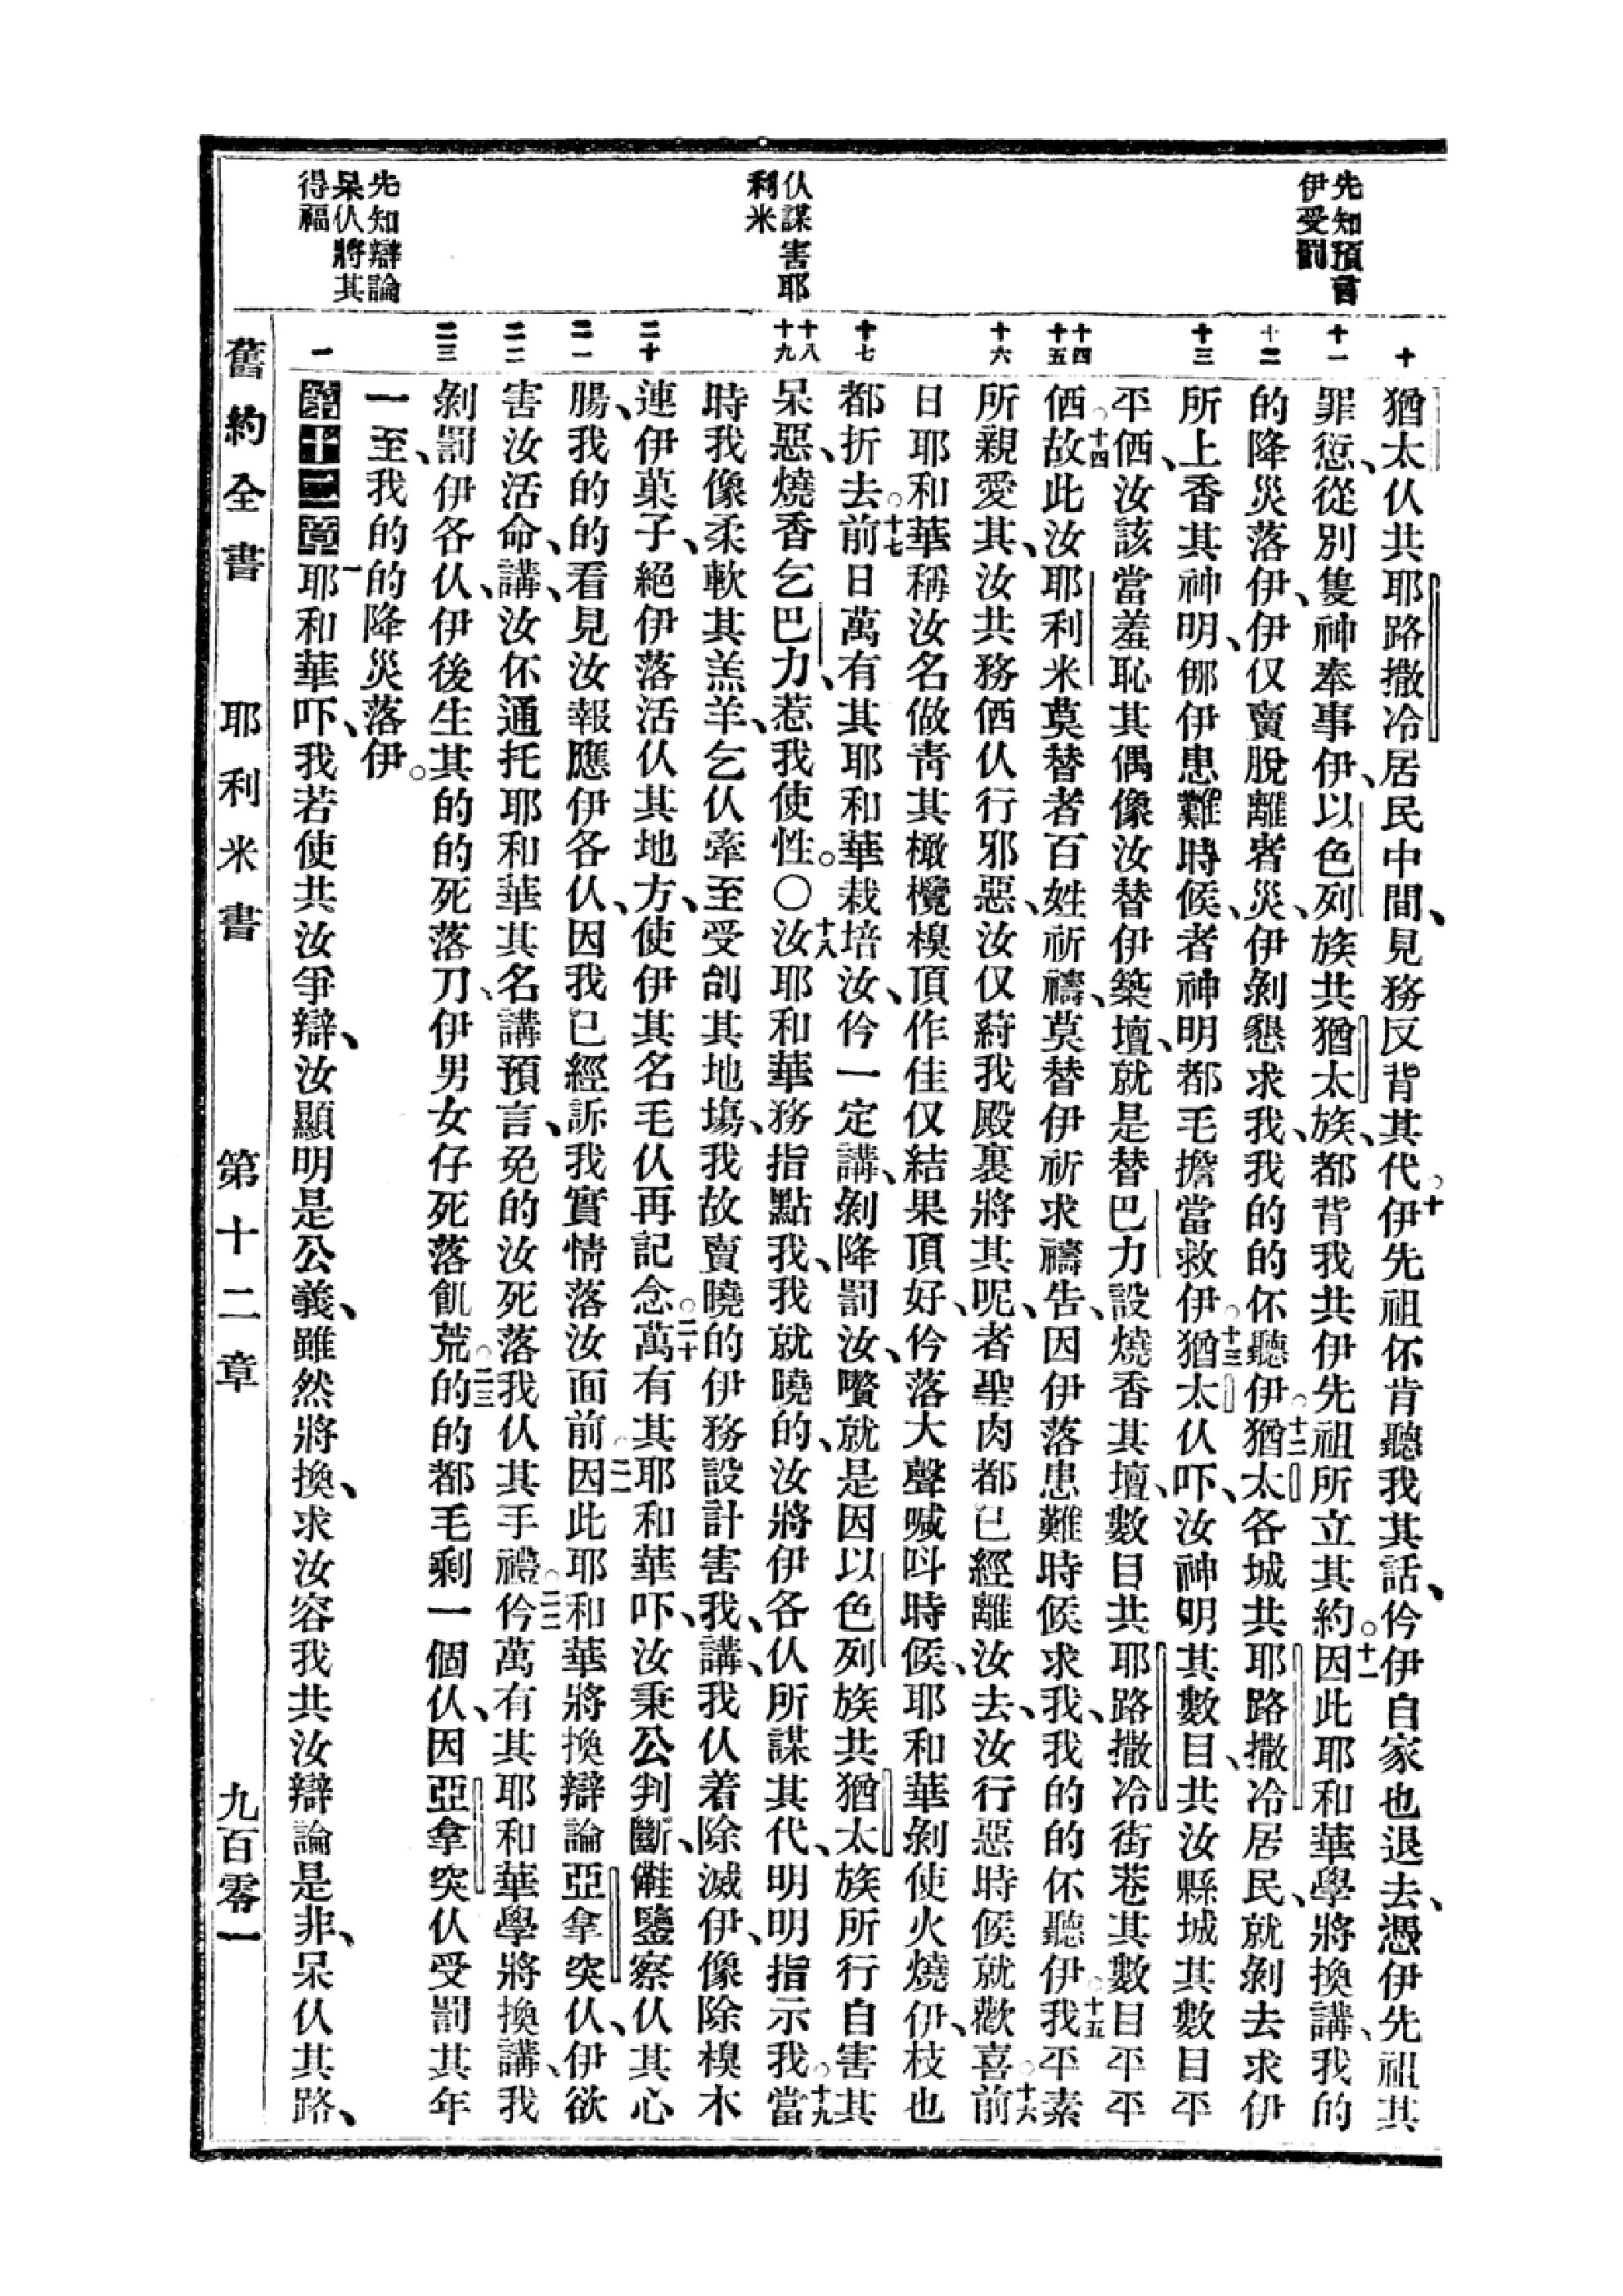 先知預言
伊受罰
仈謀害耶
利米
先知辯論
呆仈將其
得福
十
十一
十二
十三
十四
十五
十六
十七
十八
十九
二十
二一
二二
二三
一
猶太仈共耶路撒冷居民中間、見務反背其代。十伊先祖伓肯聽我其話、仱伊自家也退去、憑伊先祖其
罪愆、從別隻神奉事伊、以色列族共猶太族、都背我共伊先祖所立其約。十一因此耶和華學將換講、我的
的降災落伊、伊仅賣脫離者災、伊剝懇求我、我的的伓聽伊。十二猶太各城共耶路撒冷居民、就剝去求伊
所上香其神明、挪伊患難時候、者神明都毛擔當救伊。十三猶太仈吓、汝神明其數目、共汝縣城其數目平
平㑚、汝該當羞恥其偶像汝替伊築壇、就是替巴力設燒香其壇、數目共耶路撒冷街巷其數目平平
㑚。十四故此汝耶利米莫替者百姓祈禱、莫替伊祈求禱告、因伊落患難時候求我、我的的伓聽伊。十五我平素
所親愛其、汝共務㑚仈行邪惡、汝仅葤我殿裏將其呢、者聖肉都已經離汝去、汝行惡時候就歡喜。十六前
日耶和華稱汝名做靑其橄欖樹頂作佳仅結果頂好、仱落大聲喊呌時候、耶和華剝使火燒伊、枝也
都折去。十七前日萬有其耶和華栽培汝、仱一定講、剝降罰汝、嚽就是因以色列族共猶太族所行自害其
呆惡、燒香乞巴力、惹我使性。〇十八汝耶和華務指點我、我就曉的、汝將伊各仈所謀其代、明明指示我。十九當
時我像柔軟其羔羊、乞仈牽至受创其地塲、我故賣曉的伊務設計害我、講、我仈着除滅伊、像除樹木
連伊菓子、絕伊落活仈其地方、使伊其名毛仈再記念。二十萬有其耶和華吓、汝秉公判斷、儺鑒察仈其心
腸、我的的看見汝報應伊各仈、因我已經訴我實情落汝面前。二一因此耶和華將換辯論亞拿突仈、伊欲
害汝活命、講、汝伓通托耶和華其名講預言、免的汝死落我仈其手禮。二二仱萬有其耶和華學將換講、我
剝罰伊各仈、伊後生其的的死落刀、伊男女仔死落飢荒。二三的的都毛剩一個仈、因亞拿突仈受罰其年
一至、我的的降災落伊。
第十二章 一耶和華吓、我若使共汝爭辯、汝顯明是公義、雖然將換、求汝容我共汝辯論是非、呆仈其路、
舊約全書 耶利米書 第十二章 九百零一